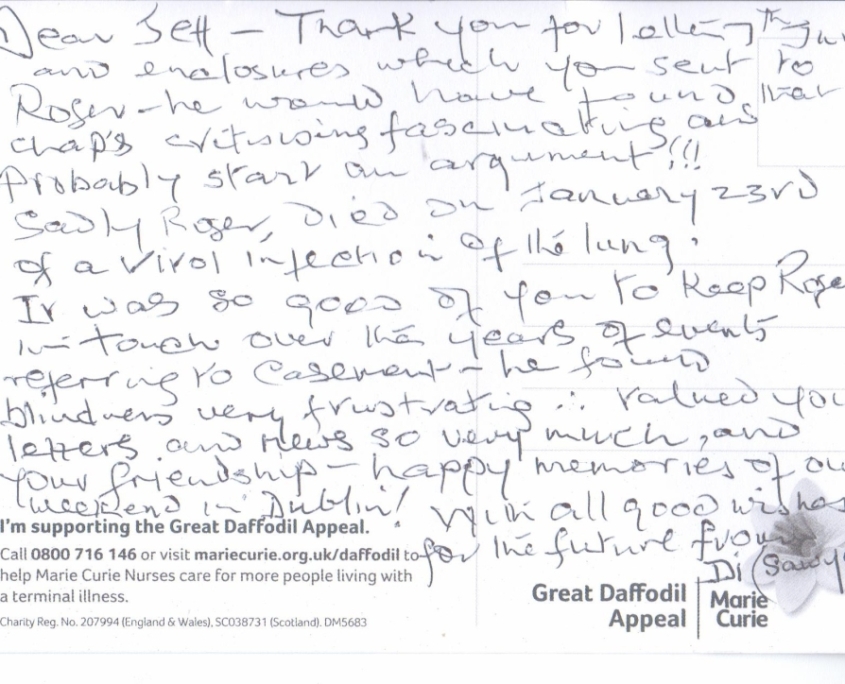 Dear Jeff – Thank you for letting
and enclosures which you sent to
Roger – he would have found that
chap's critisising fascinating and
Probably start an argument!!!
Sadly Roger, died on January 23rd
of a viral infection of the lung.
It was so good of you to keep Roge
in touch over the years of events
referring to Casement – he found
blindness very frustrating ∴ valued you
letters and news so very much, and
your friendship – happy memories of ou
weekend in Dublin! With all good wishes
for the future from
Di (Sawy
I'm supporting the Great Daffodil Appeal.
Call 0800 716 146 or visit mariecurie.org.uk/daffodil to
help Marie Curie Nurses care for more people living with
a terminal illness.
Charity Reg. No. 207994 (England & Wales), SC038731 (Scotland). DM5683
Great Daffodil
Appeal
Marie
Curie